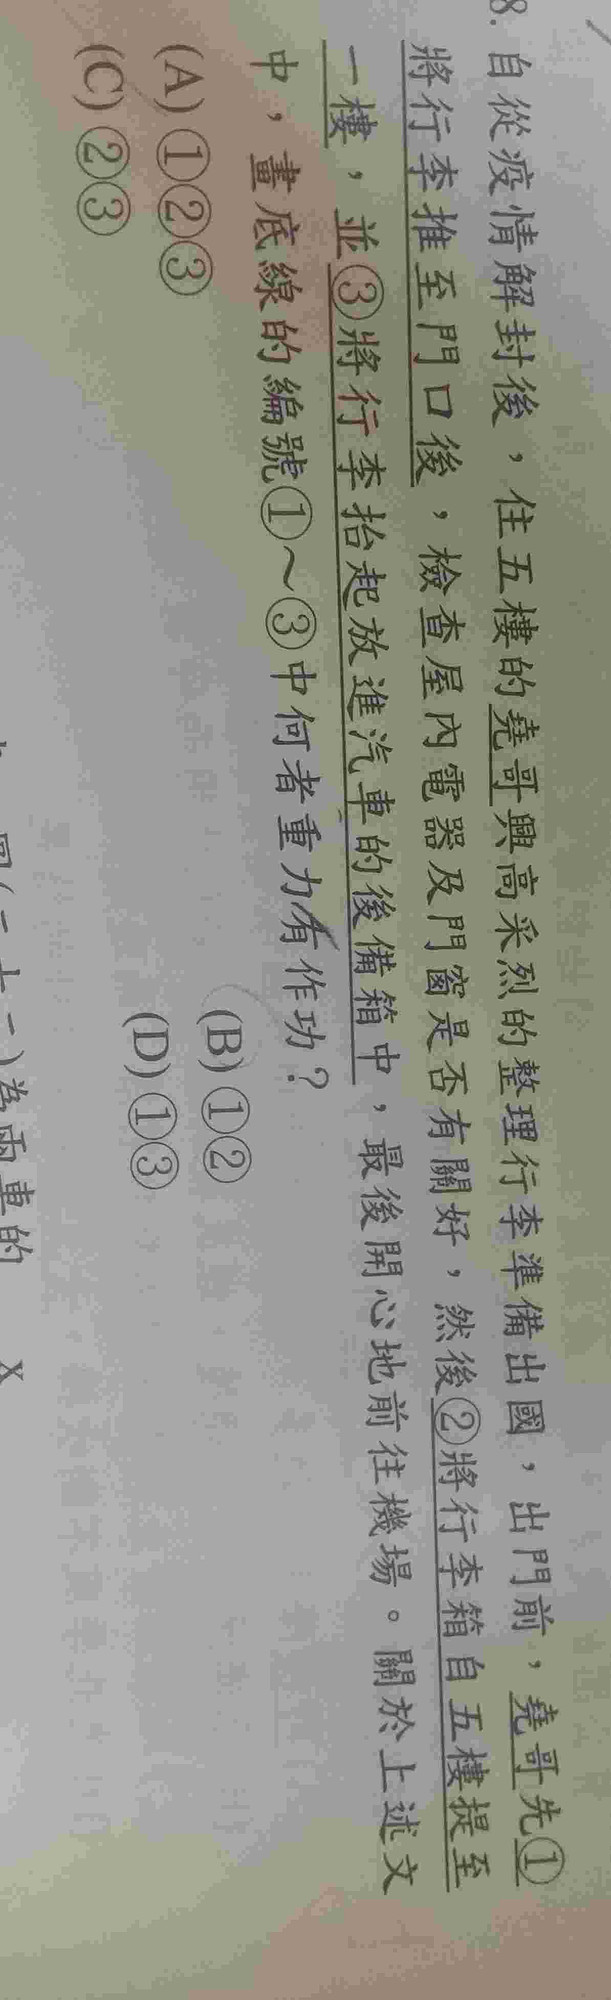 8. 自從疫情解封後，住五樓的堯哥興高采烈的整理行李準備出國，出門前，堯哥先①
將行李推至門口後，檢查屋內電器及門窗是否有關好，然後②將行李箱自五樓提至
一樓，並③將行李抬起放進汽車的後備箱中，最後開心地前往機場。關於上述文
中，畫底線的編號①～③中何者重力有作功？
(A)①②③ (B)①②
(C)②③ (D)①③
為兩車的
X